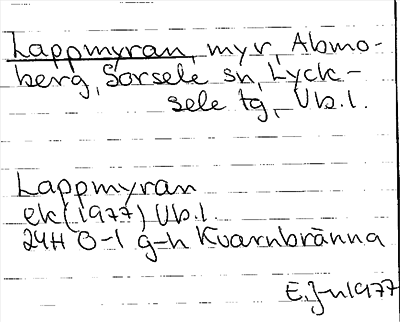 Lappmyran, myr, Abmo-
berg, Sorsele sn, Lyck-
sele tg, Vb.l.
Lappmyran
ek (1977) Vb.l.
24H 0-1 g-h Kvarnbränna
E. J-n 1977